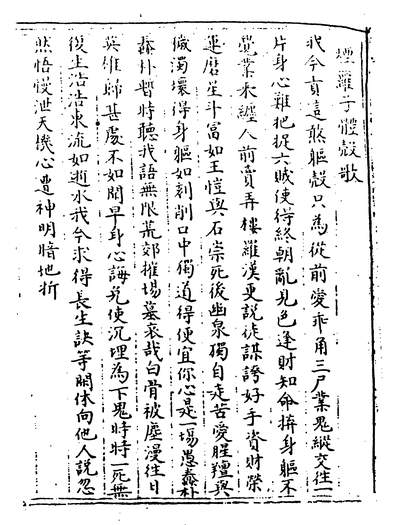 煙蘿子體殼歌
我今責這憨軀殼只為從前愛乖角三尸業鬼縱交往二
片身心難把捉六賊使得終朝亂見色逢財知命擠身軀不
覺業來纏人前賣弄樓羅漢更說徒謀誇好手資財榮
運磨星斗富如王愷與石崇死後幽泉獨自走苦愛腥羶與
穢濁壞得身軀如刻削口中獨道得便宜你心是一場愚蠢朴
蠢朴暫時聽我語無限荒郊摧塲墓哀哉白骨被塵漫往日
英雄歸甚處不如聞早身心誨免使沉埋為下鬼時時一死無
復生浩浩東流如逝水我今求得長生訣等閑休向他人說忽
然悟悞泄天機心遭神明暗地折